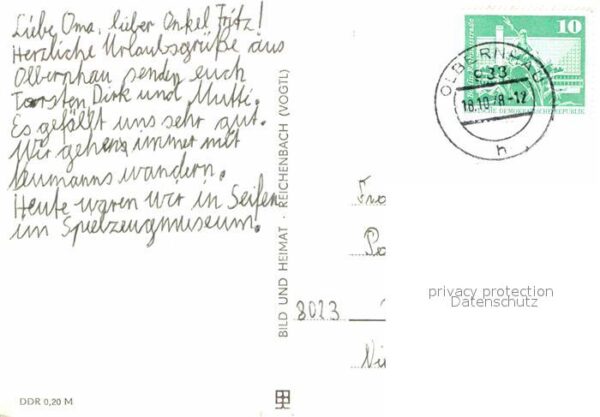 Liebe Oma, lieber Onkel Fritz!
Herzliche Urlaubsgrüße aus
Olbernhau senden euch
Torsten Dirk und Mutti.
Es gefällt uns sehr gut.
Wir gehen immer mit
Neumanns wandern.
Heute waren wir in Seifen
im Spielzeugmuseum.
BILD UND HEIMAT · REICHENBACH (VOGTL)
DDR 0,20 M
10
DEMOKRATISCHE REPUBLIK
OLBERNHAU
933
18.10.78-12
h
8023
privacy protection
Datenschutz